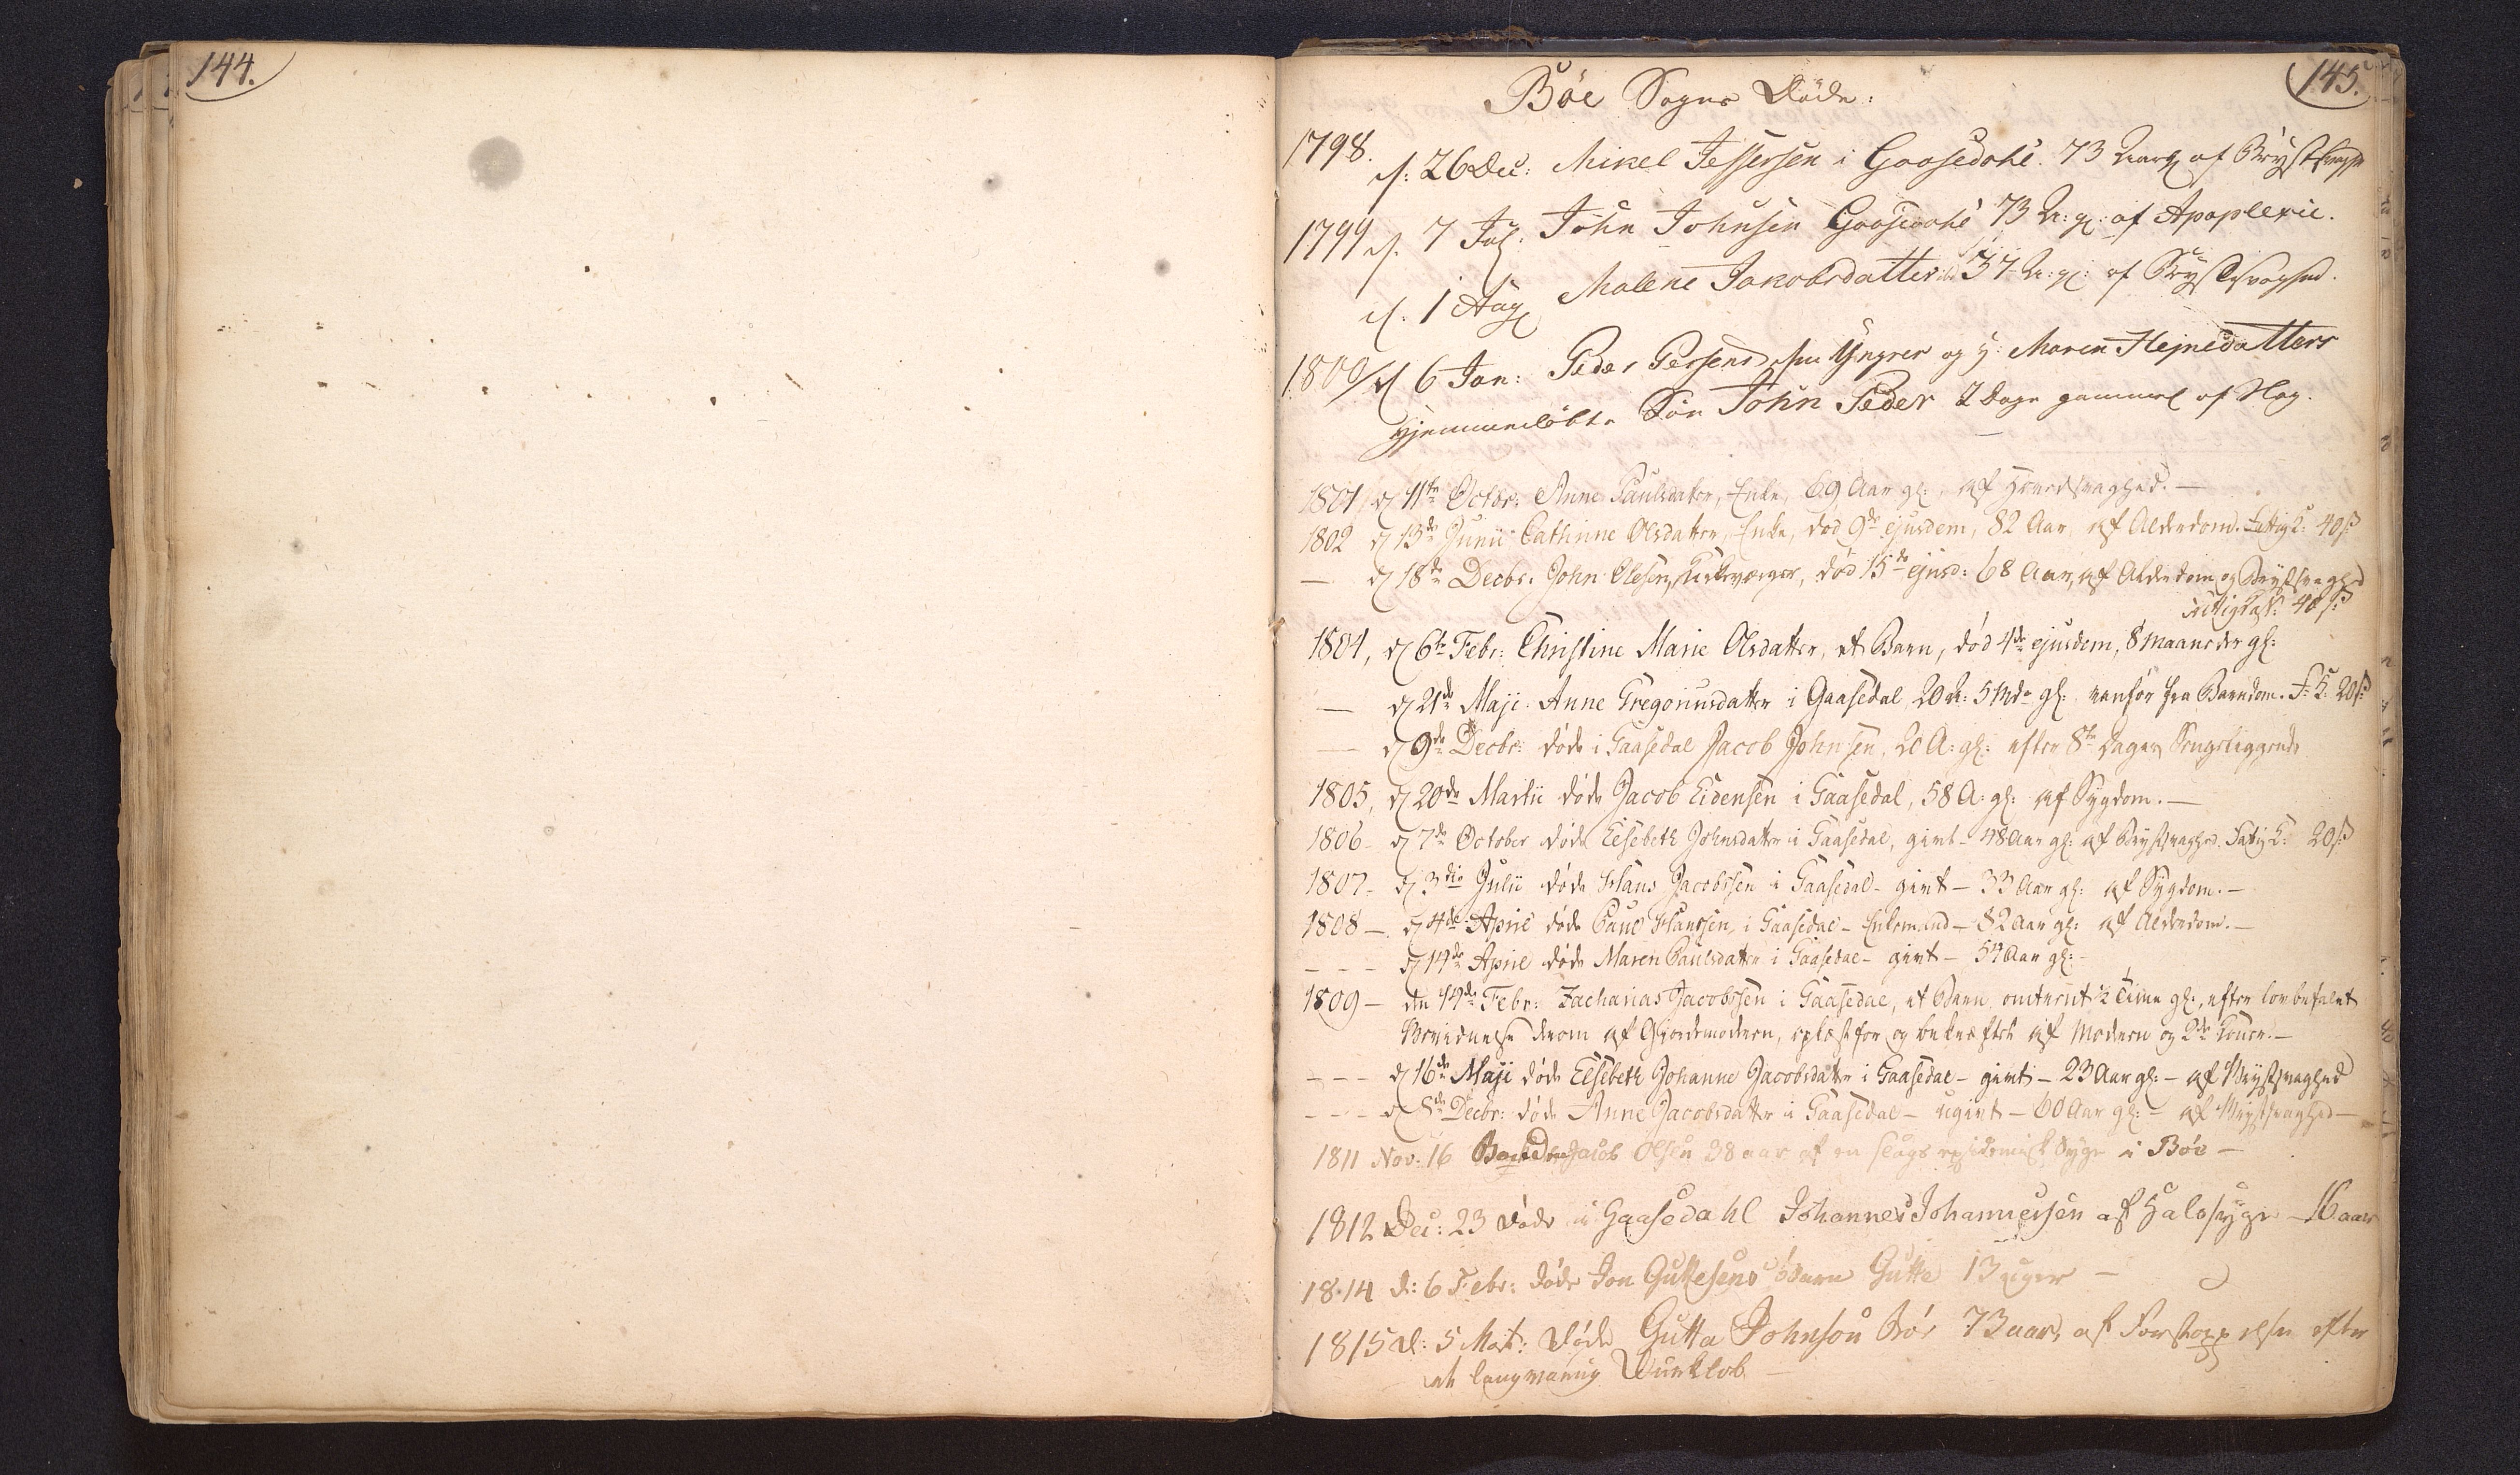 144.
145.
Bøe Sogns Døde:
1798. d: 26 Dec: Mikel Jessersen i Gaasedahl. 73 Aar gl af Brystsvaghed
1799 d. 7 Jul: John Johnsen Gaasedahl 73 Ar: gl: af Apoplexie.
d. 1 Aug Malene Jakobsdatter 37 Ar: gl: af Brystsvaghed.
1800/ d 6 Jan: Peder Persens den Yngres og H: Maren Hejnedatters
hjemmedøbte Søn John Peder 2 Dage gammel af Slag.
1801, d 11te Octbr: Anne Paulsdatter, Enke, 69 Aar gl:, af Hovedsvaghed. —
1802 d 13de Junii Cathrine Olsdatter, Enke, død 9de ejusdem, 82 Aar, af Alderdom. Fattig C: 40 ß
— d 18de Decbr: John Olesen, Kirkeværger, død 15de ejusd: 68 Aar, af Alderdom og Brystsvaghed
Fattig Cass: 40 ß:
1804, d 6te Febr: Christine Marie Olsdatter, et Barn, død 4de ejusdem, 8 Maaneder gl:
— d 21de Maji. Anne Gregoriusdatter i Gaasedal, 20 A: 5 Mdr gl: vanfør fra Barndom. F: C: 20 ß
— d 9de Decbr: døde i Gaasedal Jacob Johnsen, 20 A: gl: efter 8te Dages Sengeliggende
1805, d 20de Martii døde Jacob Eidensen i Gaasedal, 58 A: gl: af Sygdom. —
1806 - d 7de October døde Elsebeth Johnsdatter i Gaasedal, givt - 48 Aar gl: af Brystsvaghed. Fattig C: 20 ß
1807 - d 3die Julii døde Hans Jacobssen i Gaasedal - givt - 33 Aar gl: af Sygdom. —
1808 — d 4de April døde Paul Hanssen i Gaasedal - Enkemand - 82 Aar gl: af Alderdom. —
- - - d 14de April døde Maren Paulsdatter i Gaasedal - givt - 54 Aar gl: -
1809 — den 14de Febr: Zacharias Jacobssen i Gaasedal, et Barn omtrent ½ Time gl:, efter lovbefalet
Bevidnelse derom af Gjordemoderen, oplæst for og bekræftet af Moderen og 2de Koner. —
- - - d 16de Maji døde Elsebeth Johanne Jacobsdatter i Gaasedal - givt - 23 Aar gl: - af Brystsvaghed
- - - d 8de Decbr: døde Anne Jacobsdatter i Gaasedal - ugivt - 60 Aar gl: - af Brystsvaghed —
1811 Nov: 16 Jacob Olsen 28 aar af en slags epidemisk Syge i Bøe —
1812 Dec: 23 døde i Gaasedahl Johannes Johannesen af Halssyge — 16 aar
1814 d: 6 Febr: døde Jon Guttesens Barn Gutte 13 uger —
1815 d: 5 Mart: døde Gutta Johnson Bøe 73 aar, af Forstoppelse efter
et langvarig Durkløb —